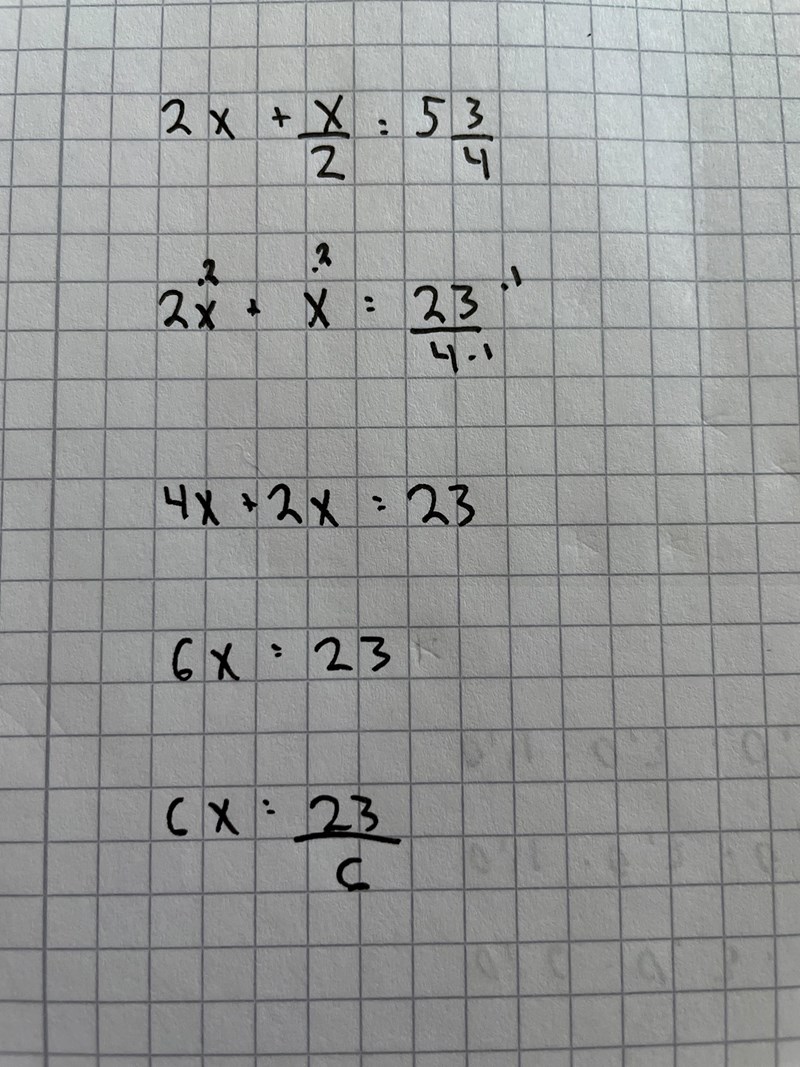 2x + x/2 = 5 3/4
2x·2 + x·2 = 23·1/4·1
4x + 2x = 23
6x = 23
6x = 23/6